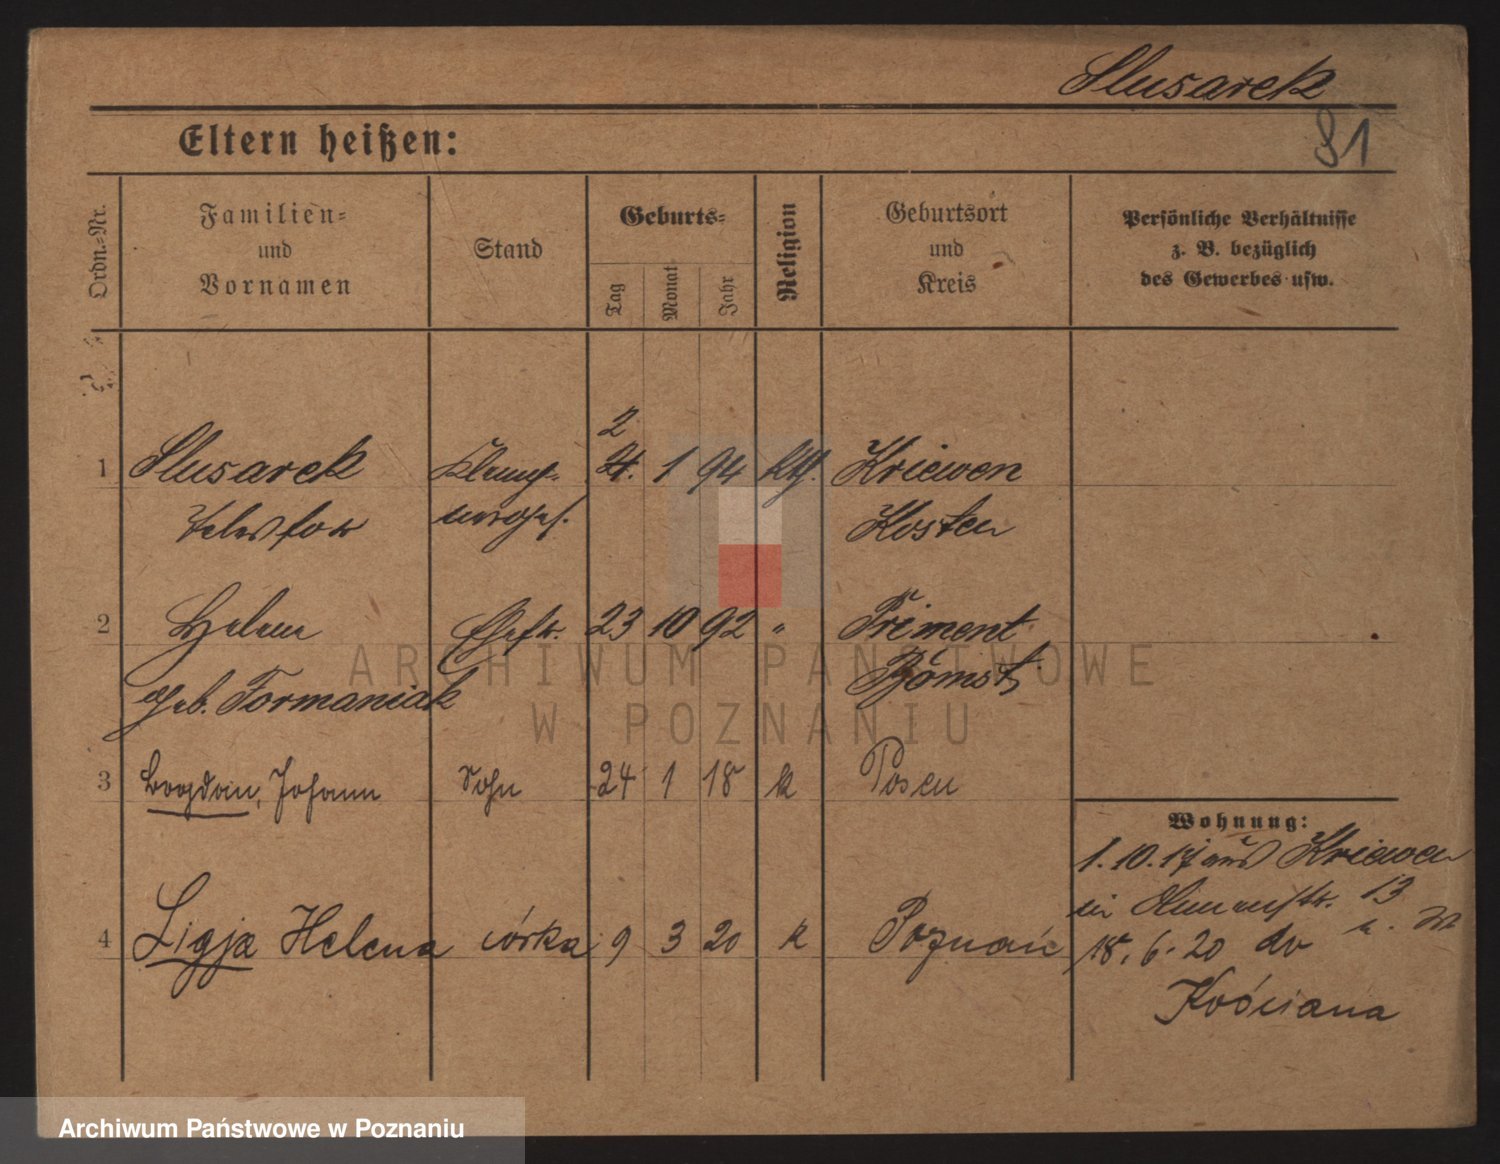 Slusarek
81
Eltern heißen:
Ordn.-Nr.
Familien-
und
Vornamen
Stand
Geburts-
Tag
Monat
Jahr
Religion
Geburtsort
und
Kreis
Persönliche Verhältnisse
z. B. bezüglich
des Gewerbes usw.
2
1 Slusarek Klemp- 4. 1 94 kth. Kriewen
Telesfor nerges. Kosten
2 Helene Ehefr. 23 10 92 " Priment
geb. Formaniak Bomst
3 Bogdan, Johann Sohn 24 1 18 k Posen
Wohnung:
1.10.17 aus Kriewen
13
4 Ligja Helena córka 9 3 20 k Poznań
18.6.20 do
Kościana
ARCHIWUM PAŃSTWOWE
W POZNANIU
Archiwum Państwowe w Poznaniu